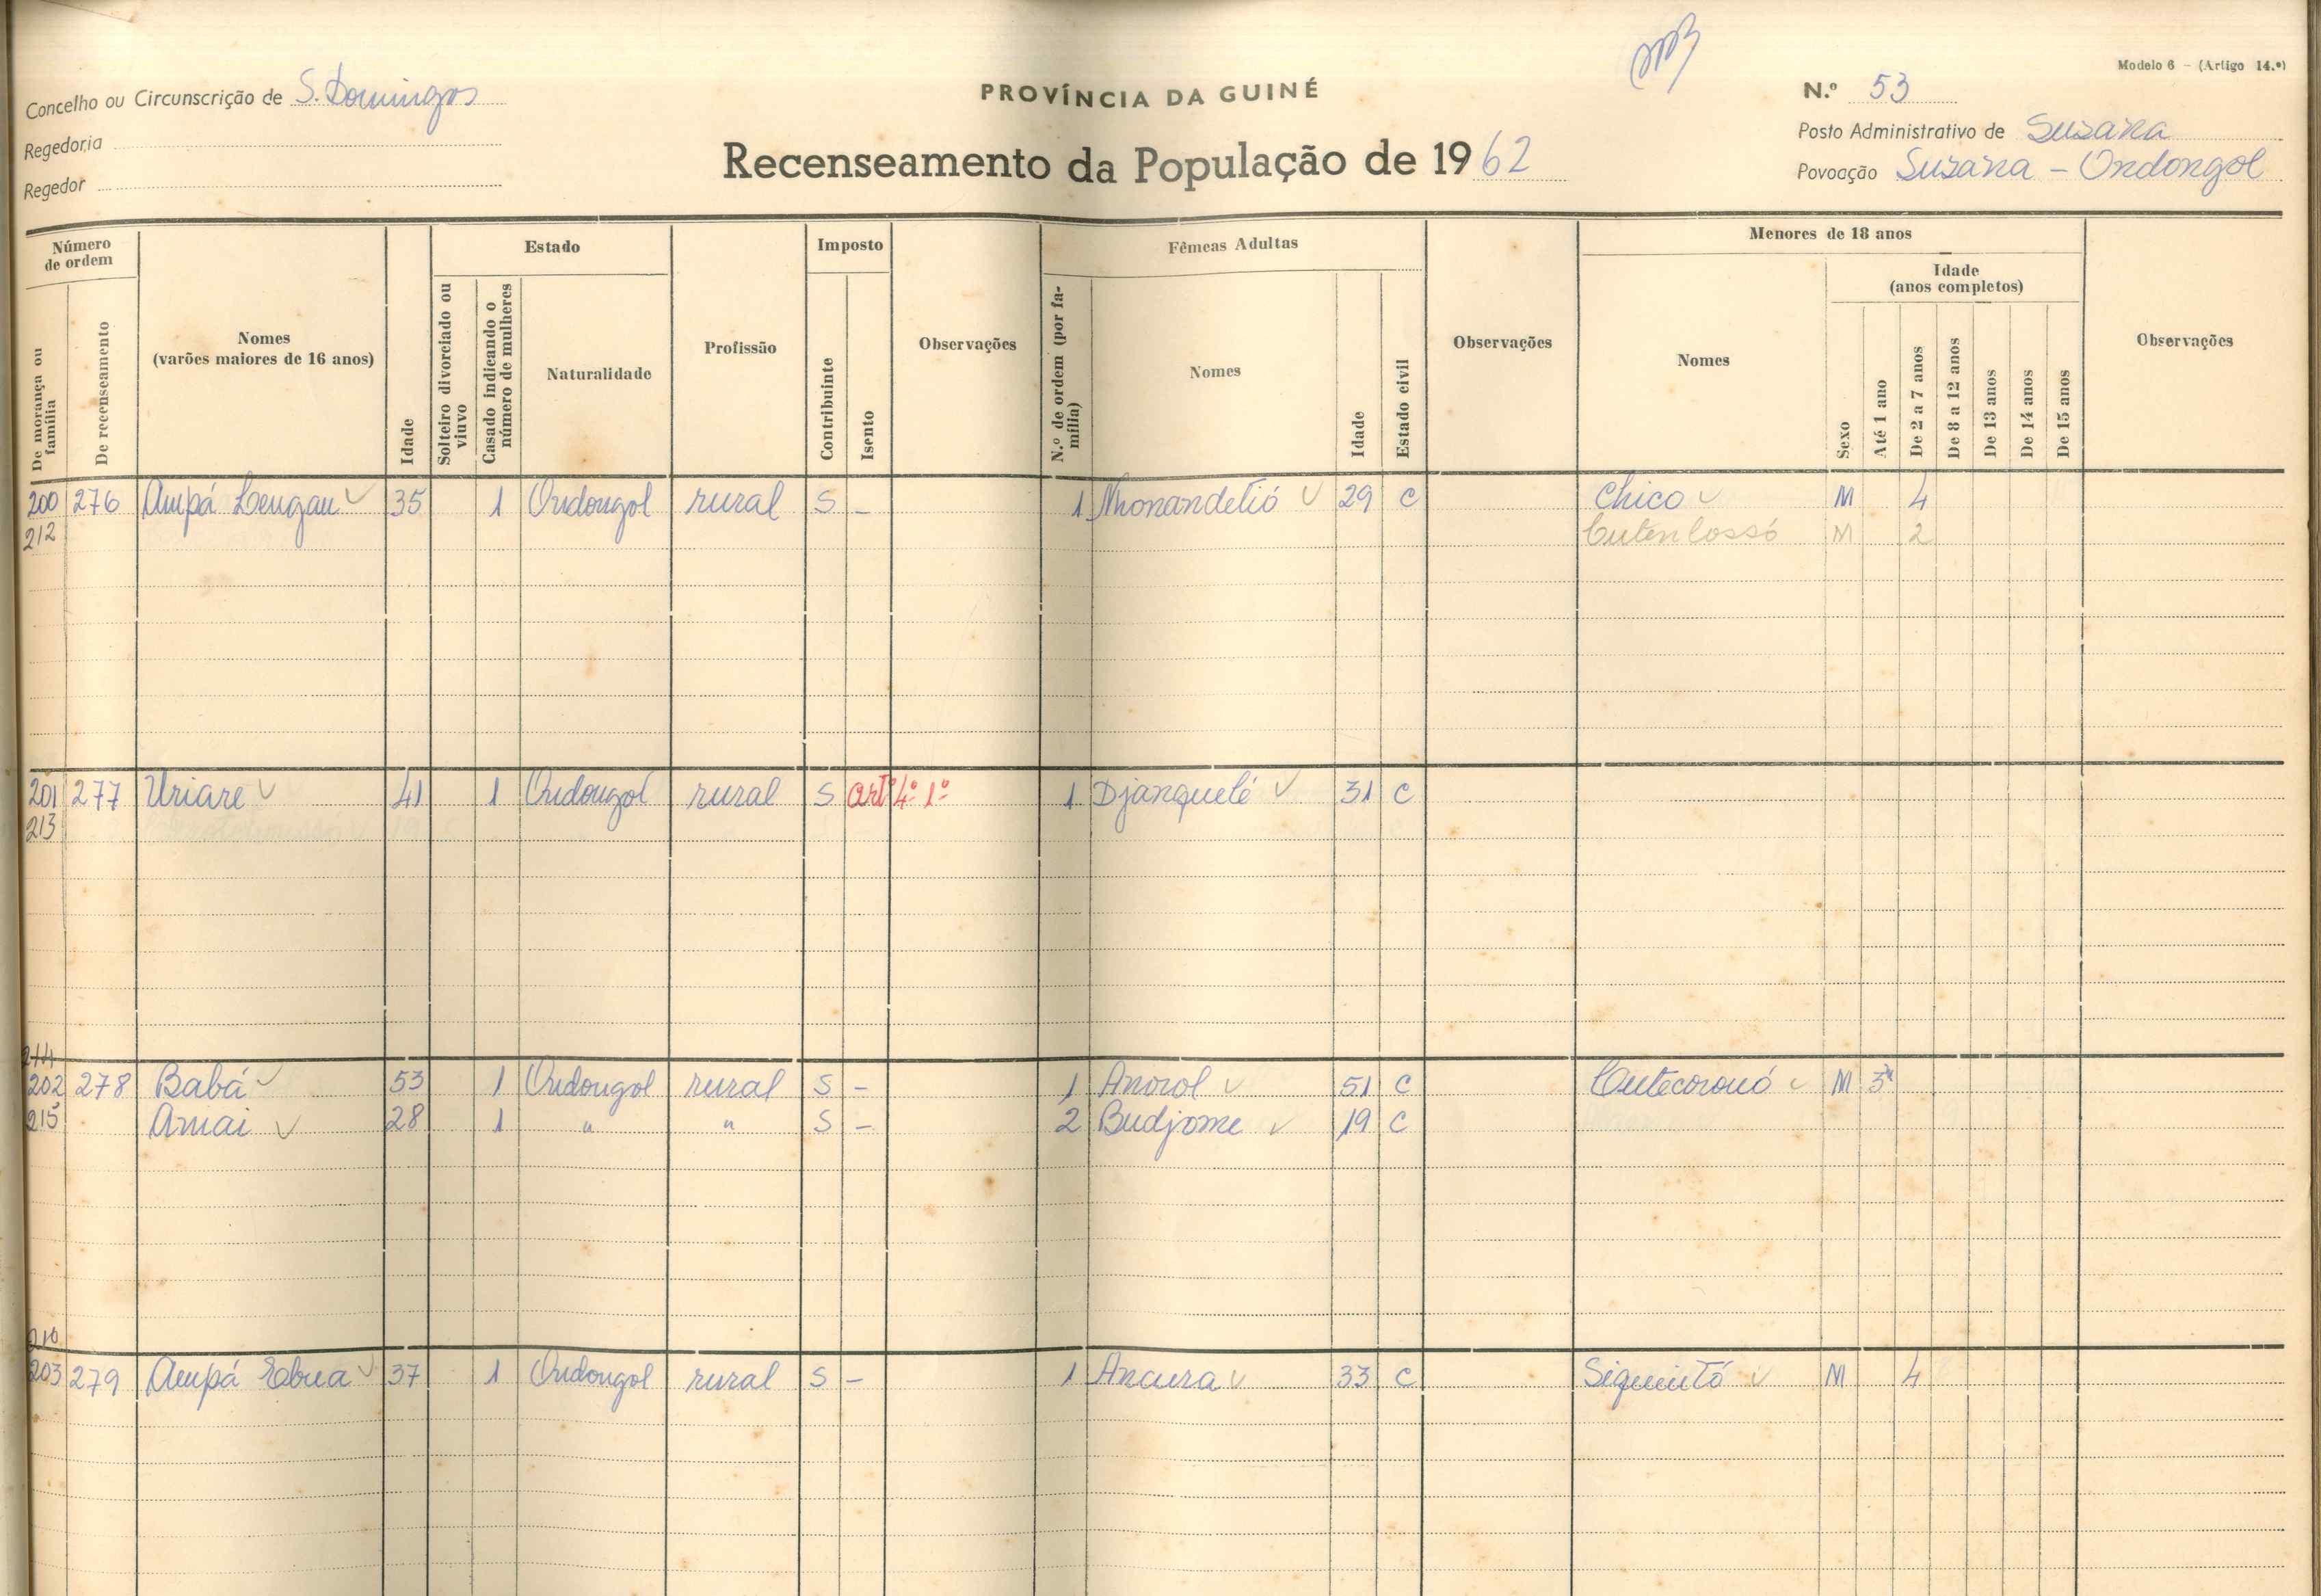 Modelo 6 - (Artigo 14.º)
Concelho ou Circunscrição de S. Domingos
PROVÍNCIA DA GUINÉ
N.º 53
Regedoria
Recenseamento da População de 1962
Posto Administrativo de Suzana
Regedor
Povoação Suzana - Ondongol
Número de ordem
Estado
Imposto
Fêmeas Adultas
Menores de 18 anos
De morança ou família
De recenseamento
Nomes
(varões maiores de 16 anos)
Idade
Solteiro divorciado ou viuvo
Casado indicando o número de mulheres
Naturalidade
Profissão
Contribuinte
Isento
Observações
N.º de ordem (por família)
Nomes
Idade
Estado civil
Observações
Nomes
Sexo
Idade
(anos completos)
Até 1 ano
De 2 a 7 anos
De 8 a 12 anos
De 13 anos
De 14 anos
De 15 anos
Observações
200 276 Ampá Lengau 35 1 Ondongol rural S - 1 Nhonandelió 29 C Chico M 4
212 M 2
201 277 Uriare 41 1 Ondongol rural S artº 4º 1º 1 Djanquelé 31 C
213
214
202 278 Babá 53 1 Ondongol rural S - 1 Anorol 51 C Cutecoronó M
215 Amai 28 1 " " S - 2 Budjome 19 C
216
203 279 Ampá Ebua 37 1 Ondongol rural S - 1 Ancura 33 C Siquintó M 4